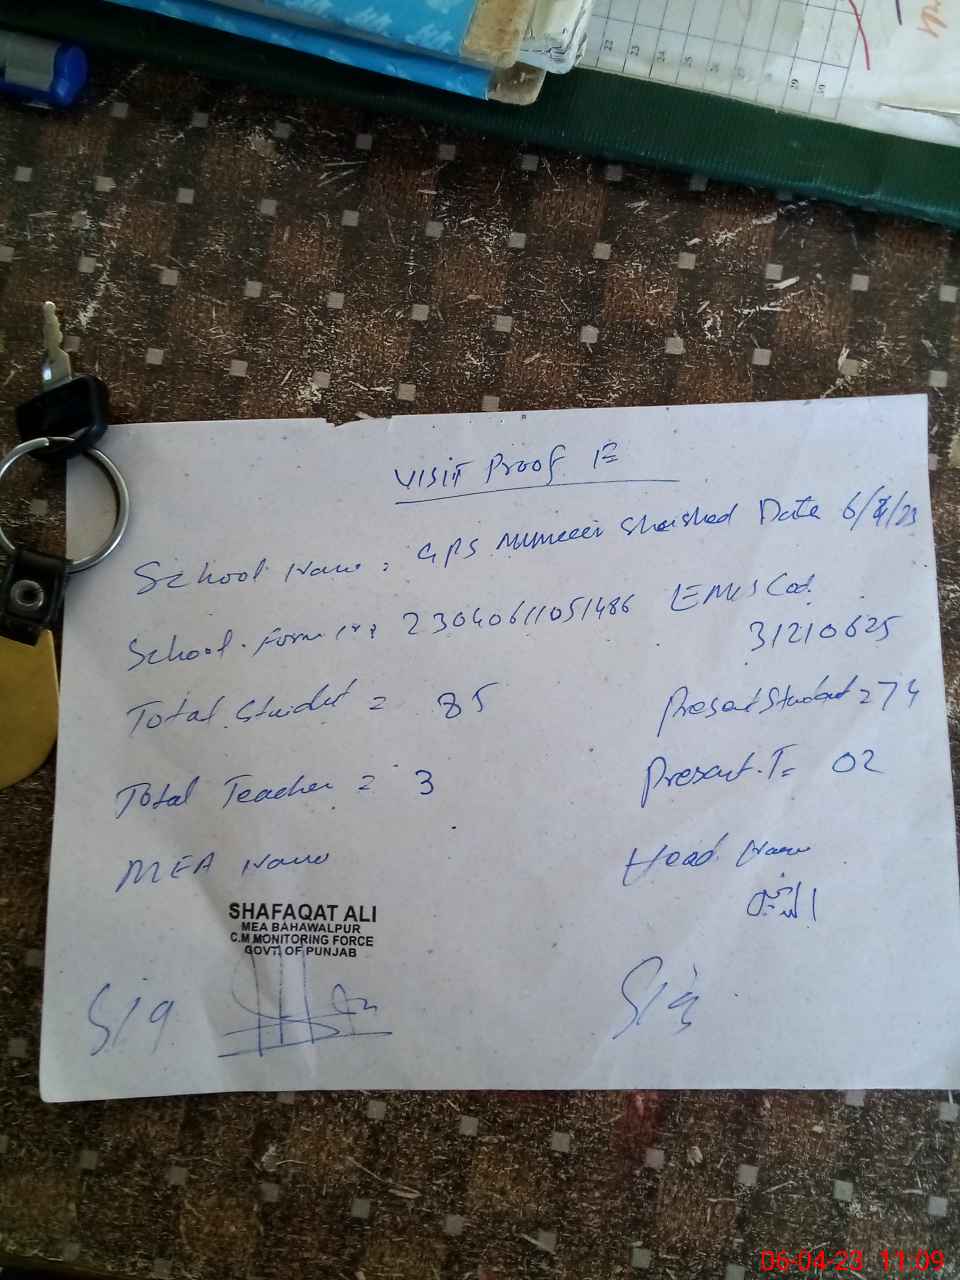 Visit Proof E
School Name : GPS Date 6/4/23
School. Form No : 23040611051486 EMIS Cod.
31210625
Total Studet = 85 Present Student = 74
Total Teacher = 3 Present. T = 02
MEA Name Head. Name
SHAFAQAT ALI
MEA BAHAWALPUR
C.M MONITORING FORCE
GOVT. OF PUNJAB
Sig Sig
22 23 24 25 26 27 28 29
06-04-23 11:09